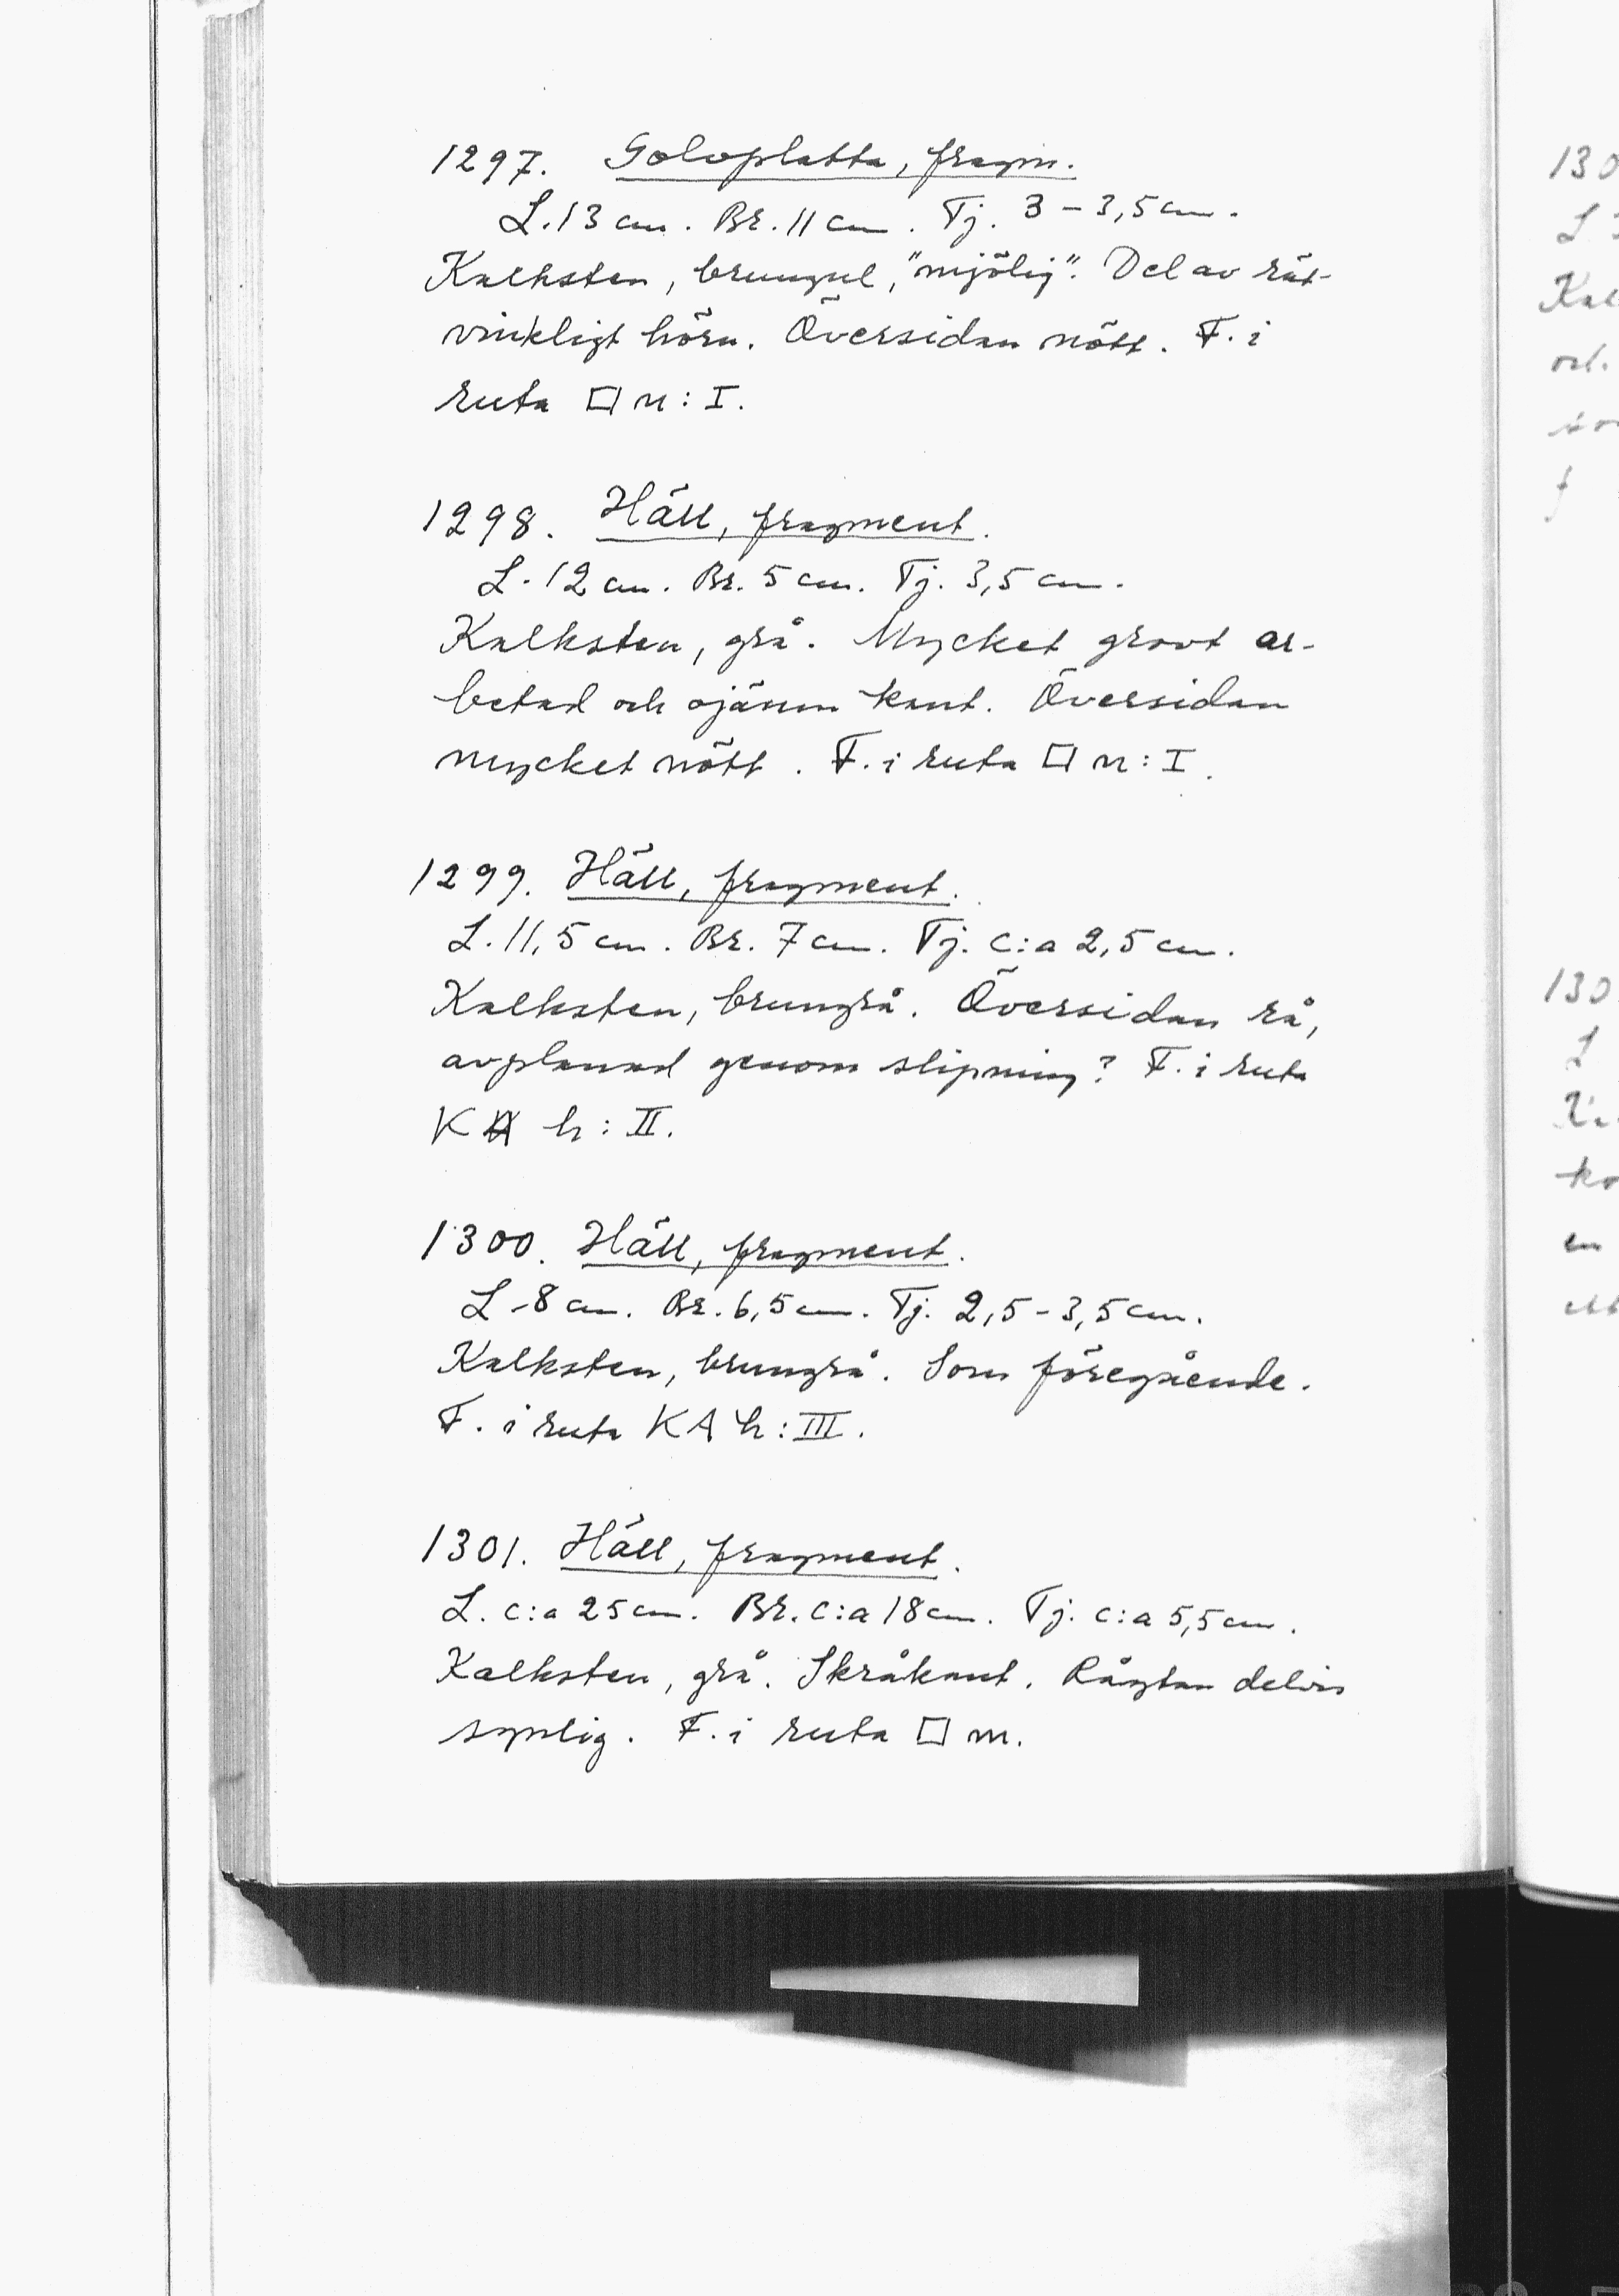 1297. Golvplatta, fragm.
L. 13 cm. Br. 11 cm. Tj. 3 – 3,5 cm.
Kalksten, brungul, "mjölig". Del av rät-
vinkligt hörn. Översidan nött. F. i
ruta □ n: I.
1298. Häll, fragment.
L. 12 cm. Br. 5 cm. Tj. 3,5 cm.
Kalksten, grå. Mycket grovt ar-
betad och ojämn kant. Översidan
mycket nött. F. i ruta □ n: I.
1299. Häll, fragment.
L. 11,5 cm. Br. 7 cm. Tj. c:a 2,5 cm.
Kalksten, brungrå. Översidan rå,
avplanad genom slipning? F. i ruta
KA h: II.
1300. Häll, fragment.
L. 8 cm. Br. 6,5 cm. Tj. 2,5 – 3,5 cm.
Kalksten, brungrå. Som föregående.
F. i ruta KA h: III.
1301. Häll, fragment.
L. c:a 25 cm. Br. c:a 18 cm. Tj. c:a 5,5 cm.
Kalksten, grå. Skråkant. Råytan delvis
synlig. F. i ruta □ m.